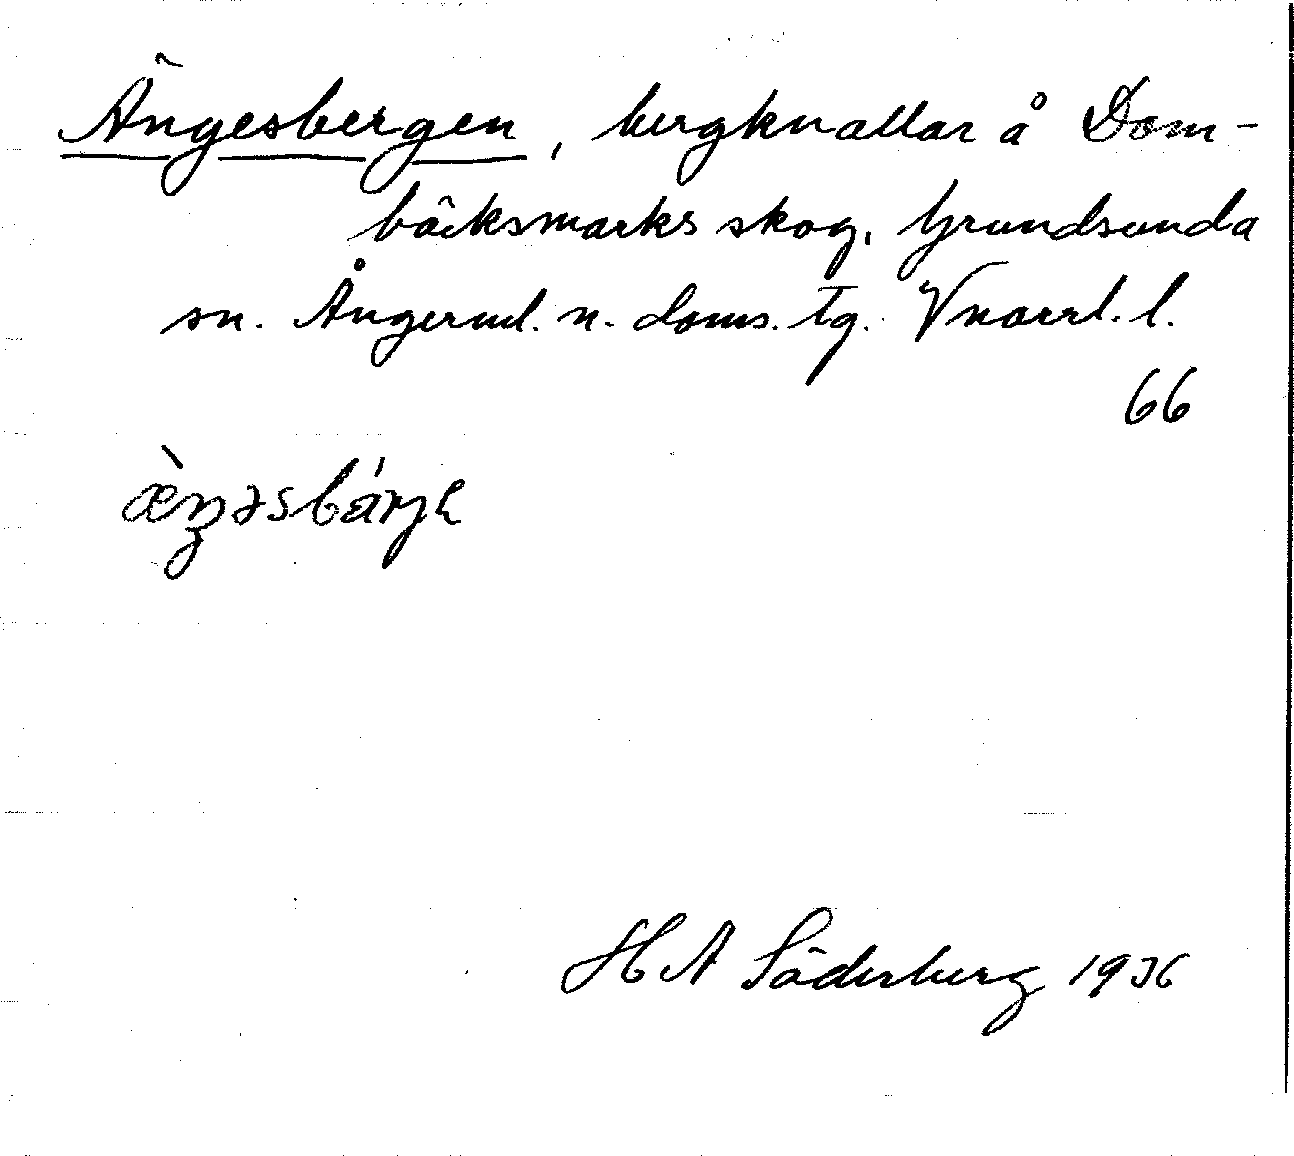 Ängesbergen, bergknallar å Dom-
bäcksmarks skog, Grundsunda
sn. Ångerml. n. doms. tg. Vnorrl. l.
66
H A Söderberg 1936